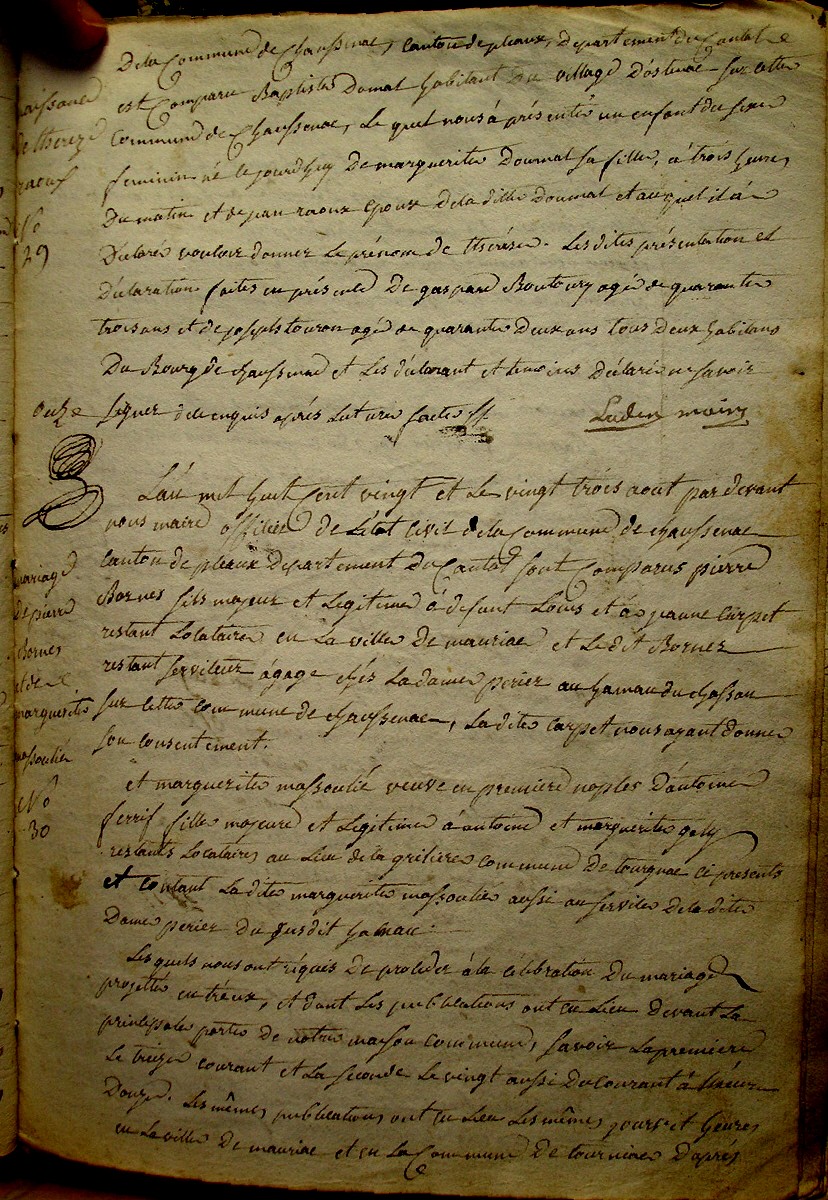 De la Commune de Chaussenac, canton de pleaux, departement du Cantal
est Comparu Baptiste Domal habitant du village D'ostenac sur cette
Commune de Chaussenac, Le quel nous à présenté un enfant du sexe
feminin né le jourdhuy De marguerite Doumal sa fille, à trois heures
Du matin et de jean raoux epoux de la ditte Doumal et au quel il à
Déclaré vouloir donner Le prénom de thérése. Les dites présentation et
Déclaration faites en présence De gaspard Boutoury agé de quarante
trois ans et de joseph touron agé de quarante Deux ans tous Deux habitans
Du Bourg de chaussenac et Les déclarant et temoins Déclaré ne savoir
signer de ce enquis après Lecture faite
naissance
de thereze
raoux
No
29
L'an mil huit Cent vingt et Le vingt trois aout par devant
nous maire officier De L'état Civil de la Commune de chaussenac
canton de pleaux Departement Du Cantal sont Comparus pierre
Bornes fils majeur et Legitime à defunt Louis et à jeanne Carpet
restant Locataire en La ville De mauriac et Le dit Bornes
restant serviteur à gage chés La dame perier au hameau du chassan
sur cette commune de chaussenac, La dite Carpet nous ayant donner
son consentement.
mariage
De pierre
Bornes
et de
marguerite
massoulié
No
30
et marguerite massoulié veuve en premiere noples D'antoine
ferrif fille majeure et Legitime à antoine et marguerite gely
restants Locataires au Lieu de la grilière commune De tourniac ci presents
et La dite marguerite massoulié aussi au service De la dite
Dame perier Du susdit hameau.
Lesquels nous ont réquis De proceder à la célébration Du mariage
projetté entréux, et dont Les publications ont eu Lieu devant La
principale porte De notre maison commune, savoir La premiere
Le treize courant et La seconde Le vingt aussi Du courant à L'heure
Douze. Les mêmes publications ont eu Lieu Les mêmes jours et heures
en La ville De mauriac et en La Commune De tourniac D'après